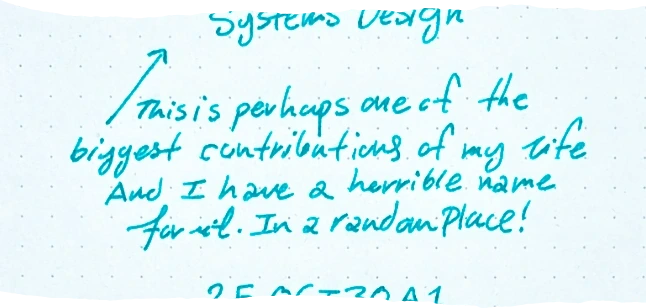 Systems Design
This is perhaps one of the
biggest contributions of my life
And I have a horrible name
for it. In a random Place!
25 OCT30 A1